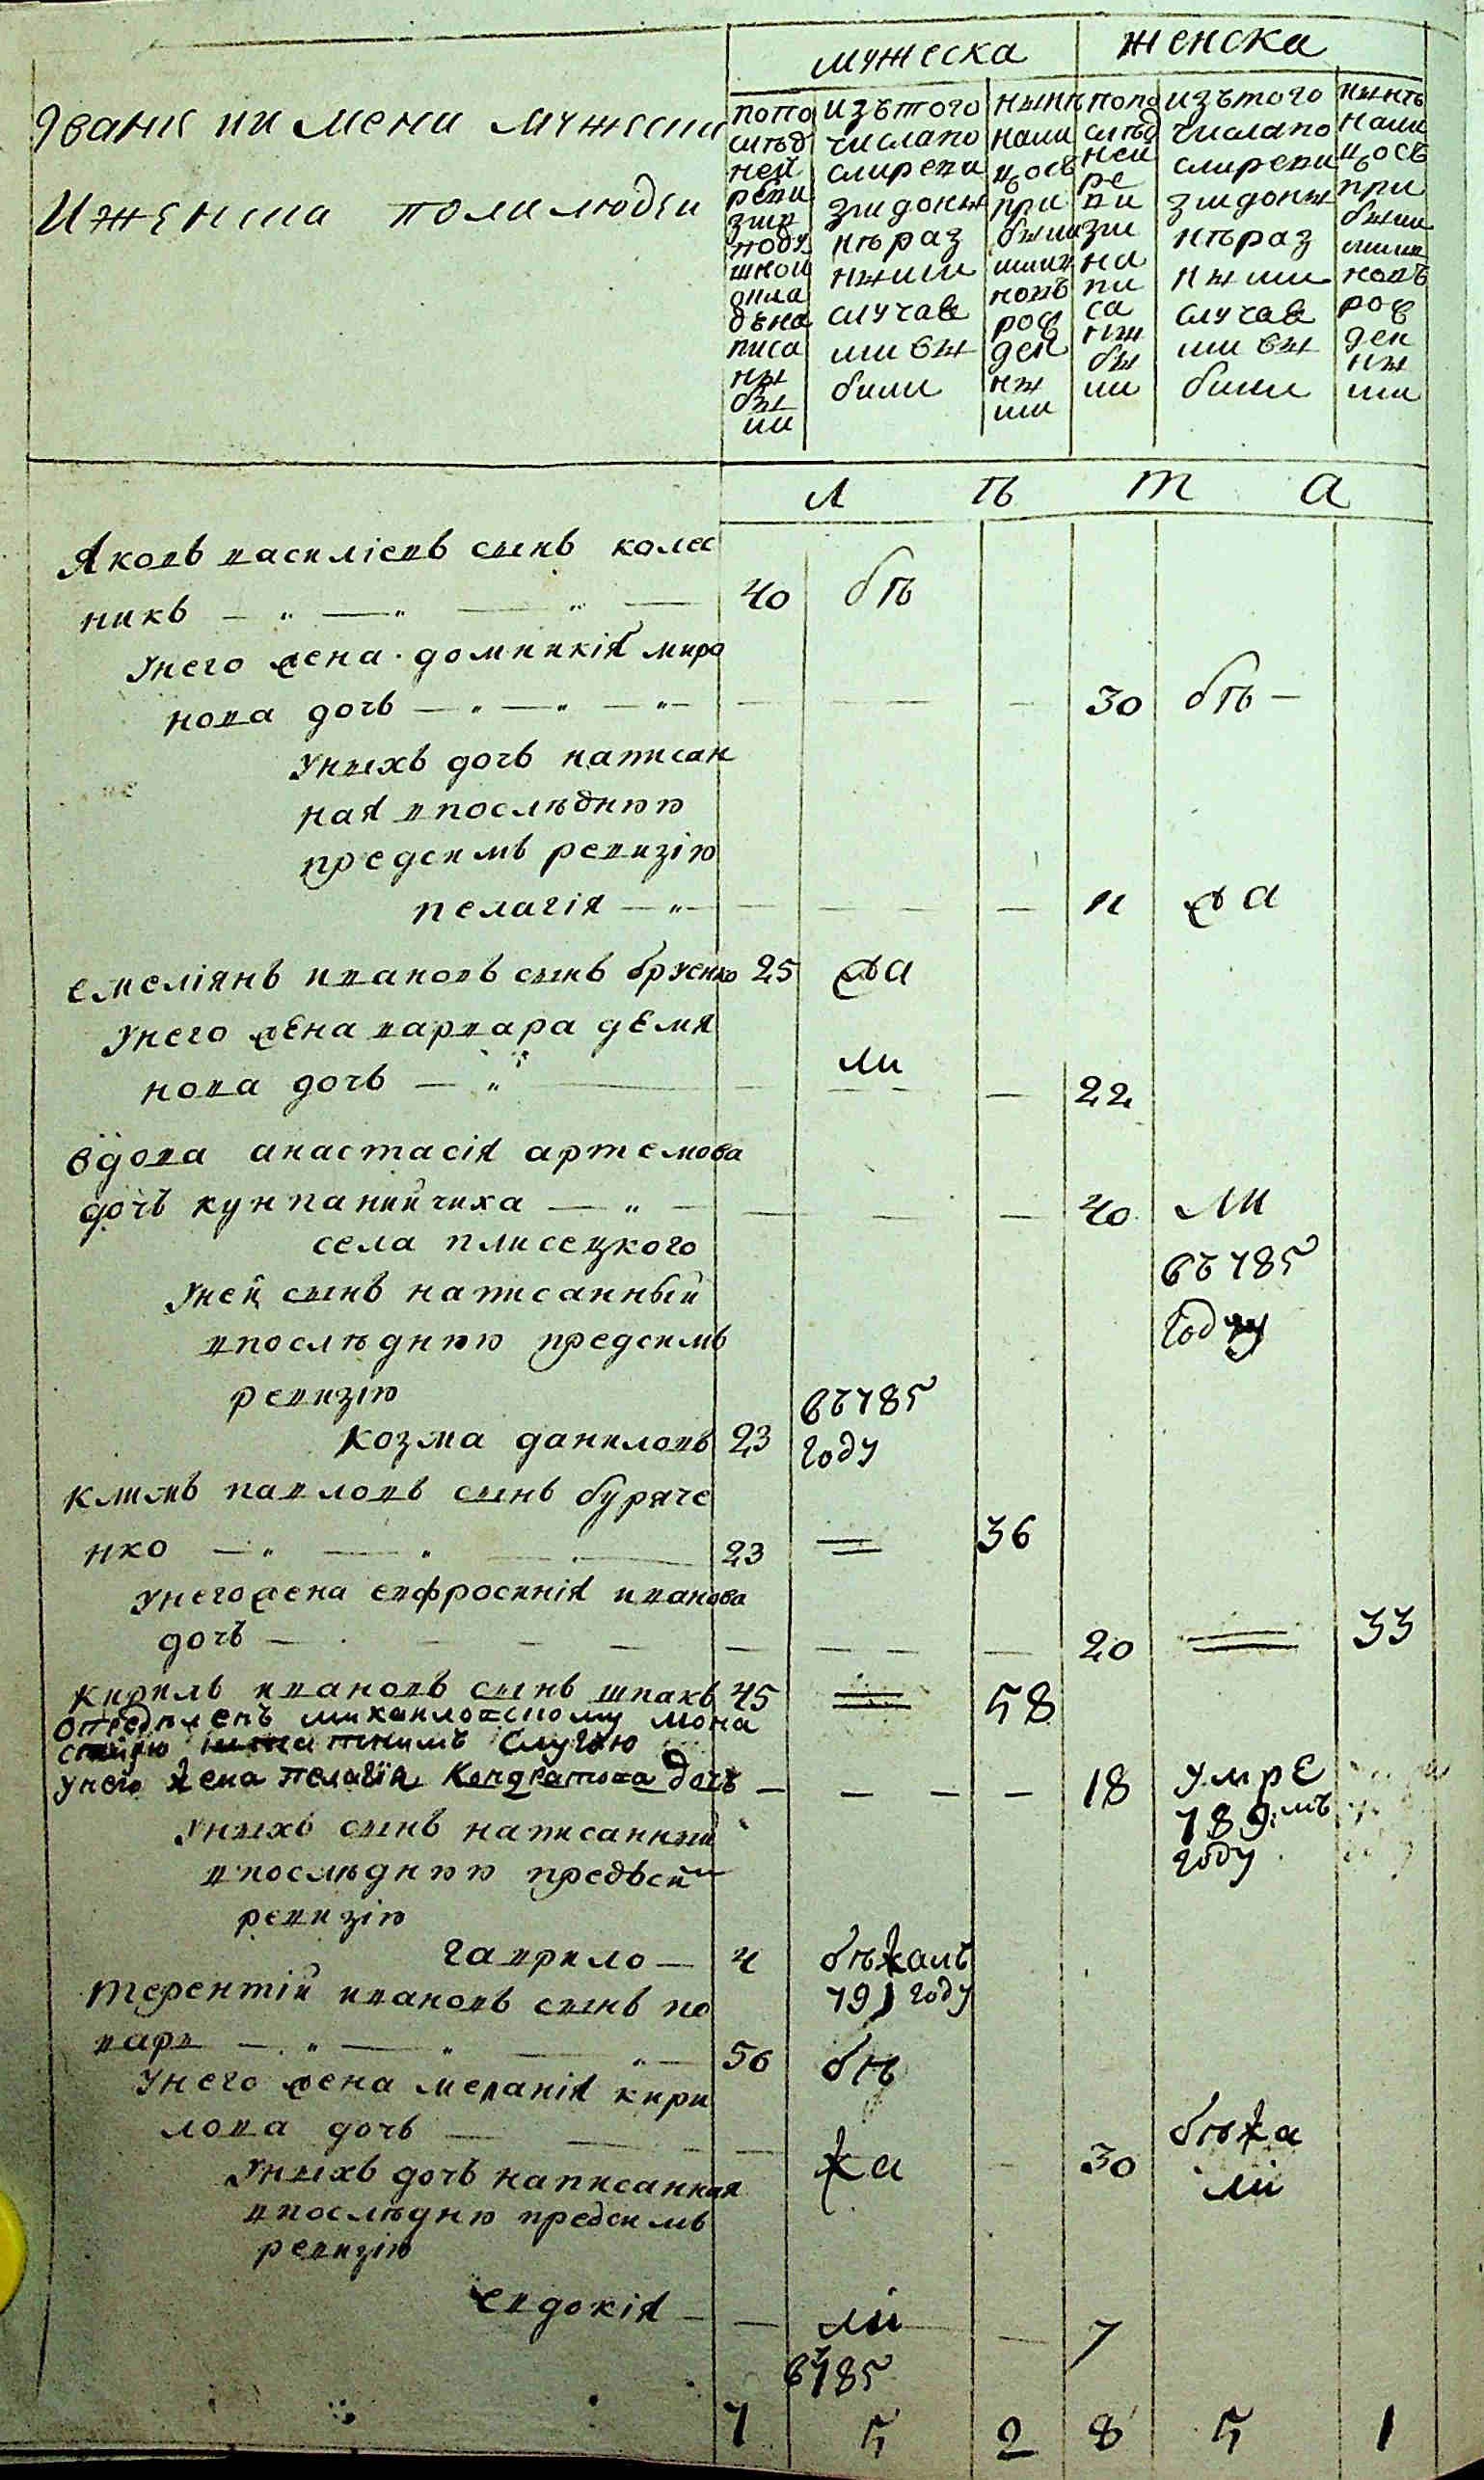 мужеска женска
Звание и имена мужеска
и женска пола людеи
попо слѣд ней реви зіи поду шной окла дѣна писа ны бы ли
изътого числапо слиревизіи доны нѣ раз ными случая ми вы были
нынѣ нали цо съ при былы ми и новъ рож ден ны ми
попо слѣд ней ре ви зіи на пи са ны бы ли
изътого числапо слиревизіи доны нѣ раз ными случая ми вы были
нынѣ нали цо съ при былы ми и новъ рож ден ны ми
л ѣ т а
Яковъ василіевъ сынъ колес
никъ 40 бѣ
Унего жена домникія миро
нова дочъ 30 бѣ
Уныхъ дочъ написан
ная впослѣднюю
предсимъ ревизію
пелагія 11 жа
емеліянъ ивановъ сынъ бруенко 25 жа
Унего жена варвара демя
нова дочъ ли 22
вдова анастасія артемова
дочъ кунпанийчиха 40 ли
села плисецкого
въ 785
году
Уней сынъ написанный
впослѣднюю предсимъ
ревизію
въ 785
козма даниловъ 23 году
климъ павловъ сынъ буряче
нко 23 = 36
Унего жена евфросинія иванова
дочъ 20 = 33
кирилъ ивановъ сынъ шпакъ 45 = 58
опредѣленъ михайловскому мона
стырю штатнимъ слугою
Унего жена пелагія Кондратова дочъ 18 умре
789.мъ
году
Уныхъ сынъ написанный
впослѣднюю предъсимъ
ревизію
гаврило 4 бѣжалъ
791 году
терентій ивановъ сынъ по
варъ 56 бѣ
Унего жена меланія кири
лова дочъ жа 30 бѣжа
ли
Уныхъ дочъ написанная
впослѣдню предсимъ
ревизію
евдокія ли 7
в 785
7 5 2 8 5 1